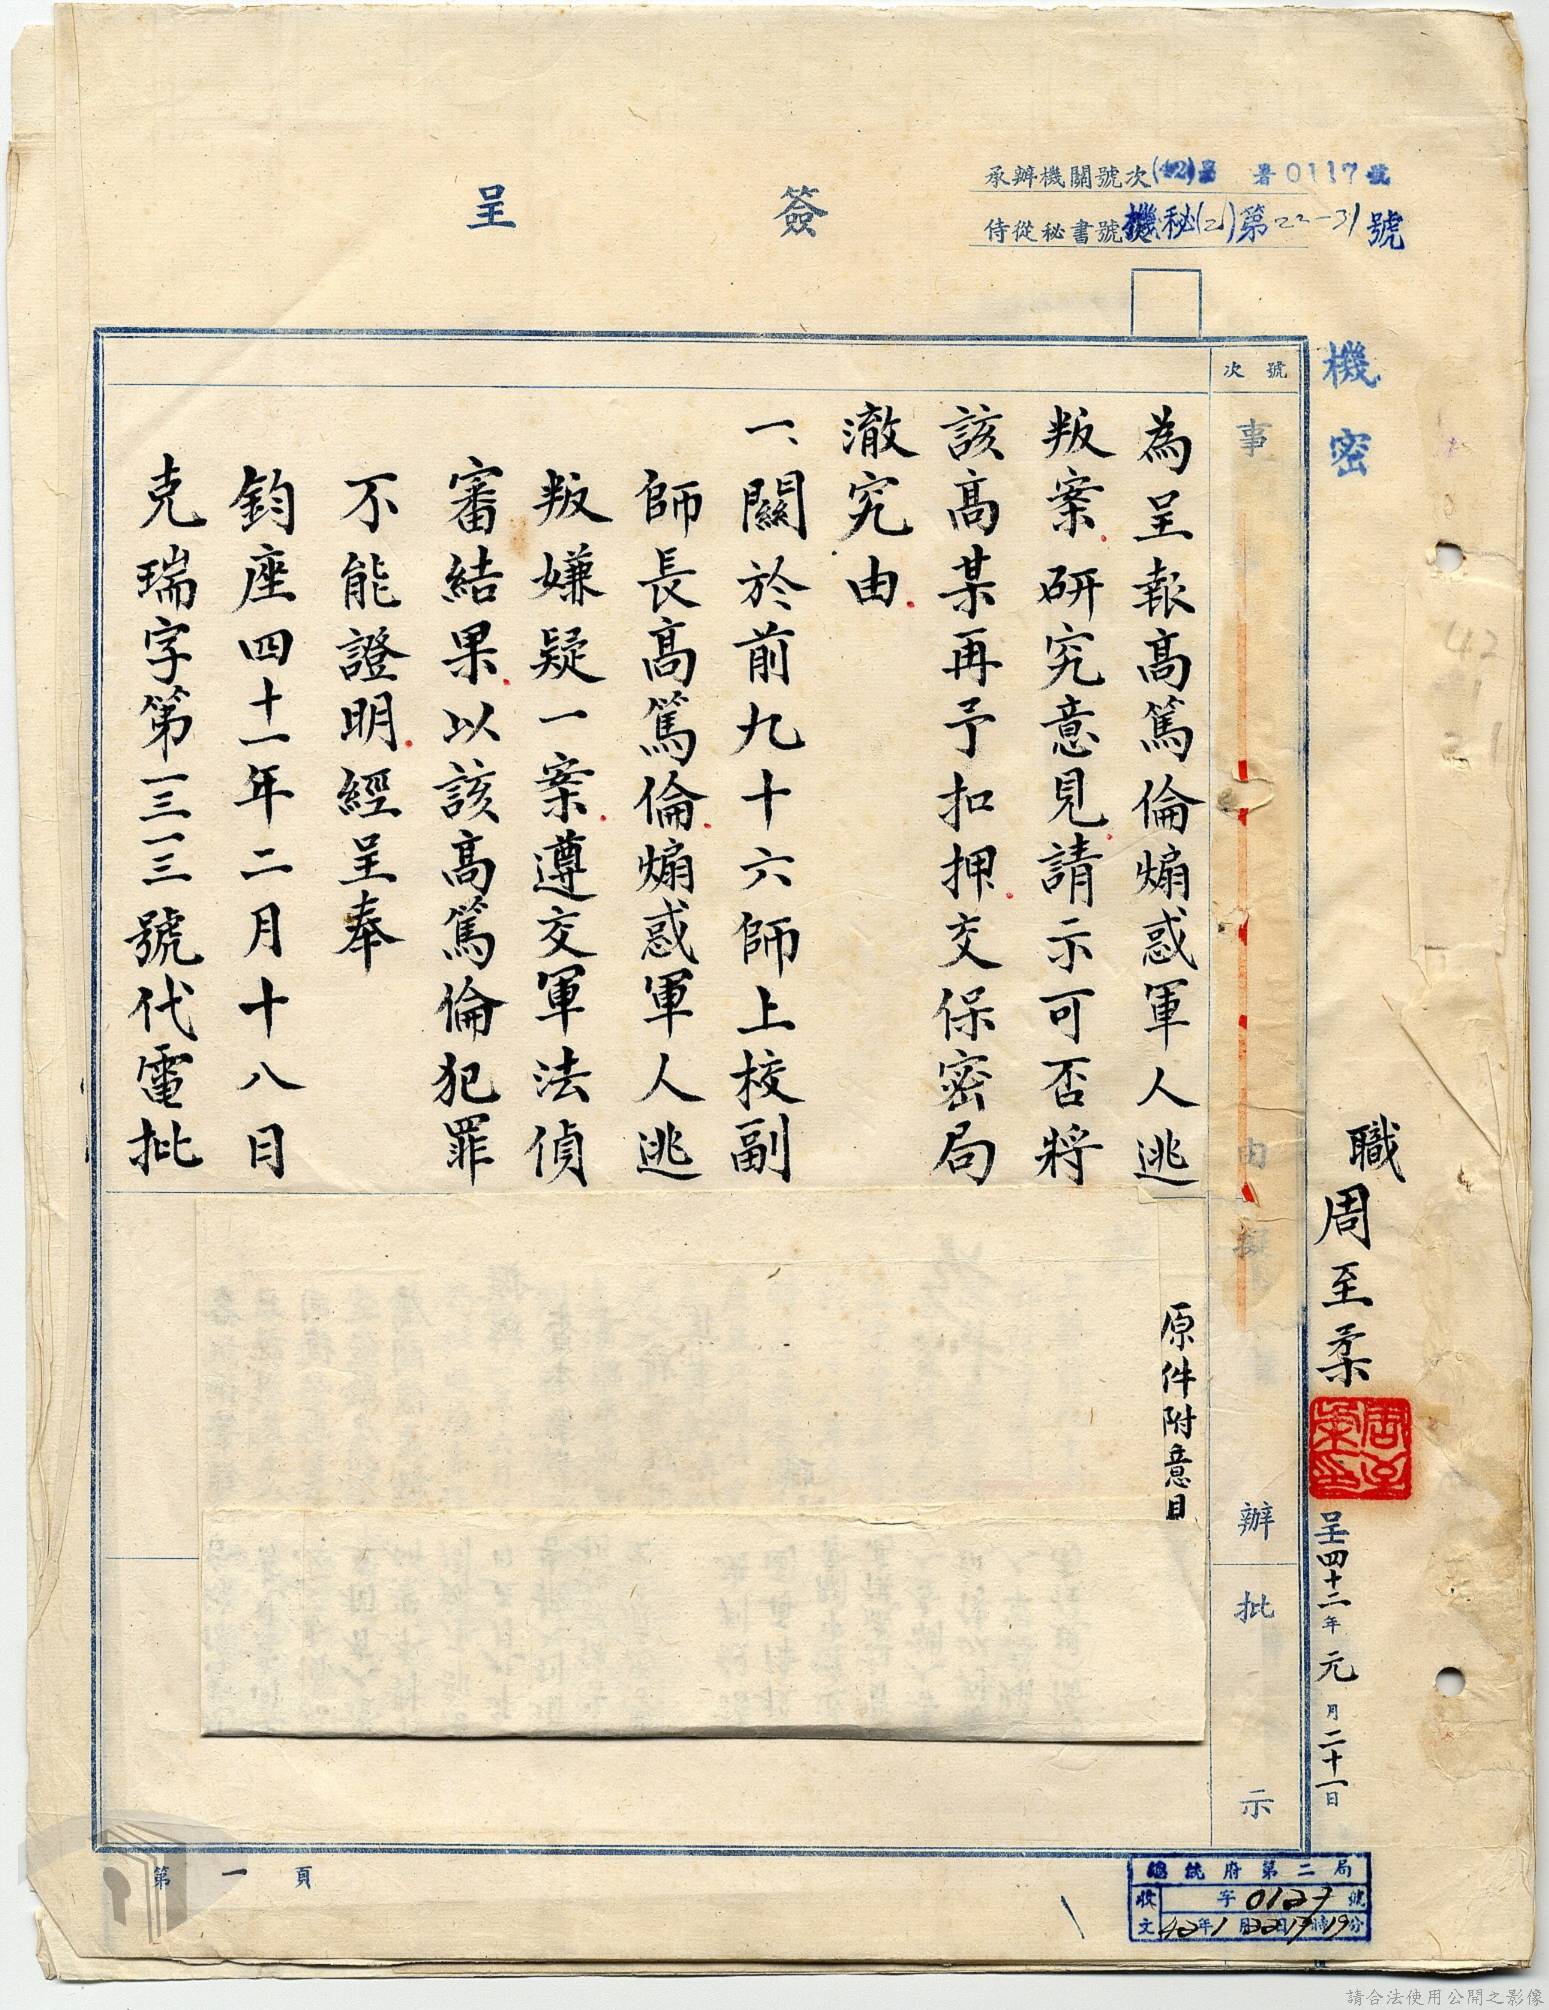 簽呈
承辦機關號次(42)署0117號
侍從秘書號機秘(21)第22-31號
機密
職周至柔
呈四十二年元月二十一日
號次
事由擬辦
批示
為呈報高篤倫煽惑軍人逃
叛案研究意見請示可否將
該高某再予扣押交保密局
澈究由
一、關於前九十六師上校副
師長高篤倫煽惑軍人逃
叛嫌疑一案遵交軍法偵
審結果以該高篤倫犯罪
不能證明經呈奉
鈞座四十一年二月十八日
克瑞字第一三一三號代電批
原件附意目
第一頁
總統府第二局
收文
字0127號
42年1月22日17時19分
請合法使用公開之影像